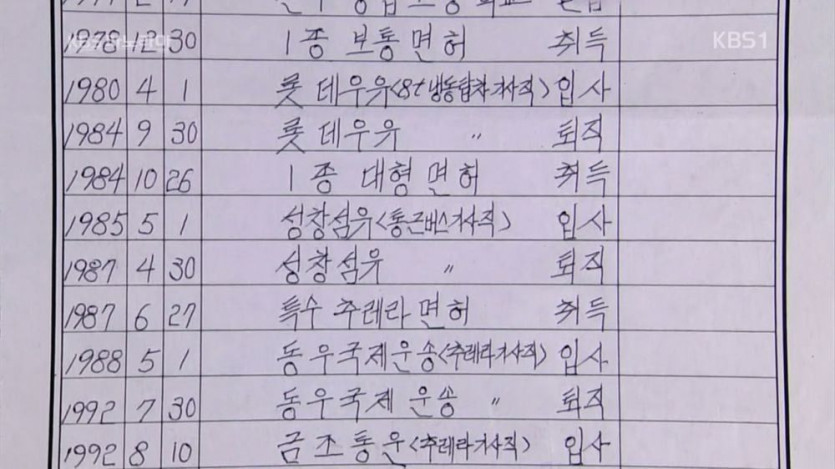 KBS1
1978 12 30 1종 보통면허 취득
1980 4 1 롯데우유(8t냉동탑차기사직) 입사
1984 9 30 롯데우유 〃 퇴직
1984 10 26 1종 대형면허 취득
1985 5 1 성창섬유(통근버스기사직) 입사
1987 4 30 성창섬유 〃 퇴직
1987 6 27 특수 추레라면허 취득
1988 5 1 동우국제운송(추레라기사직) 입사
1992 7 30 동우국제 운송 〃 퇴직
1992 8 10 금조통운(추레라기사직) 입사